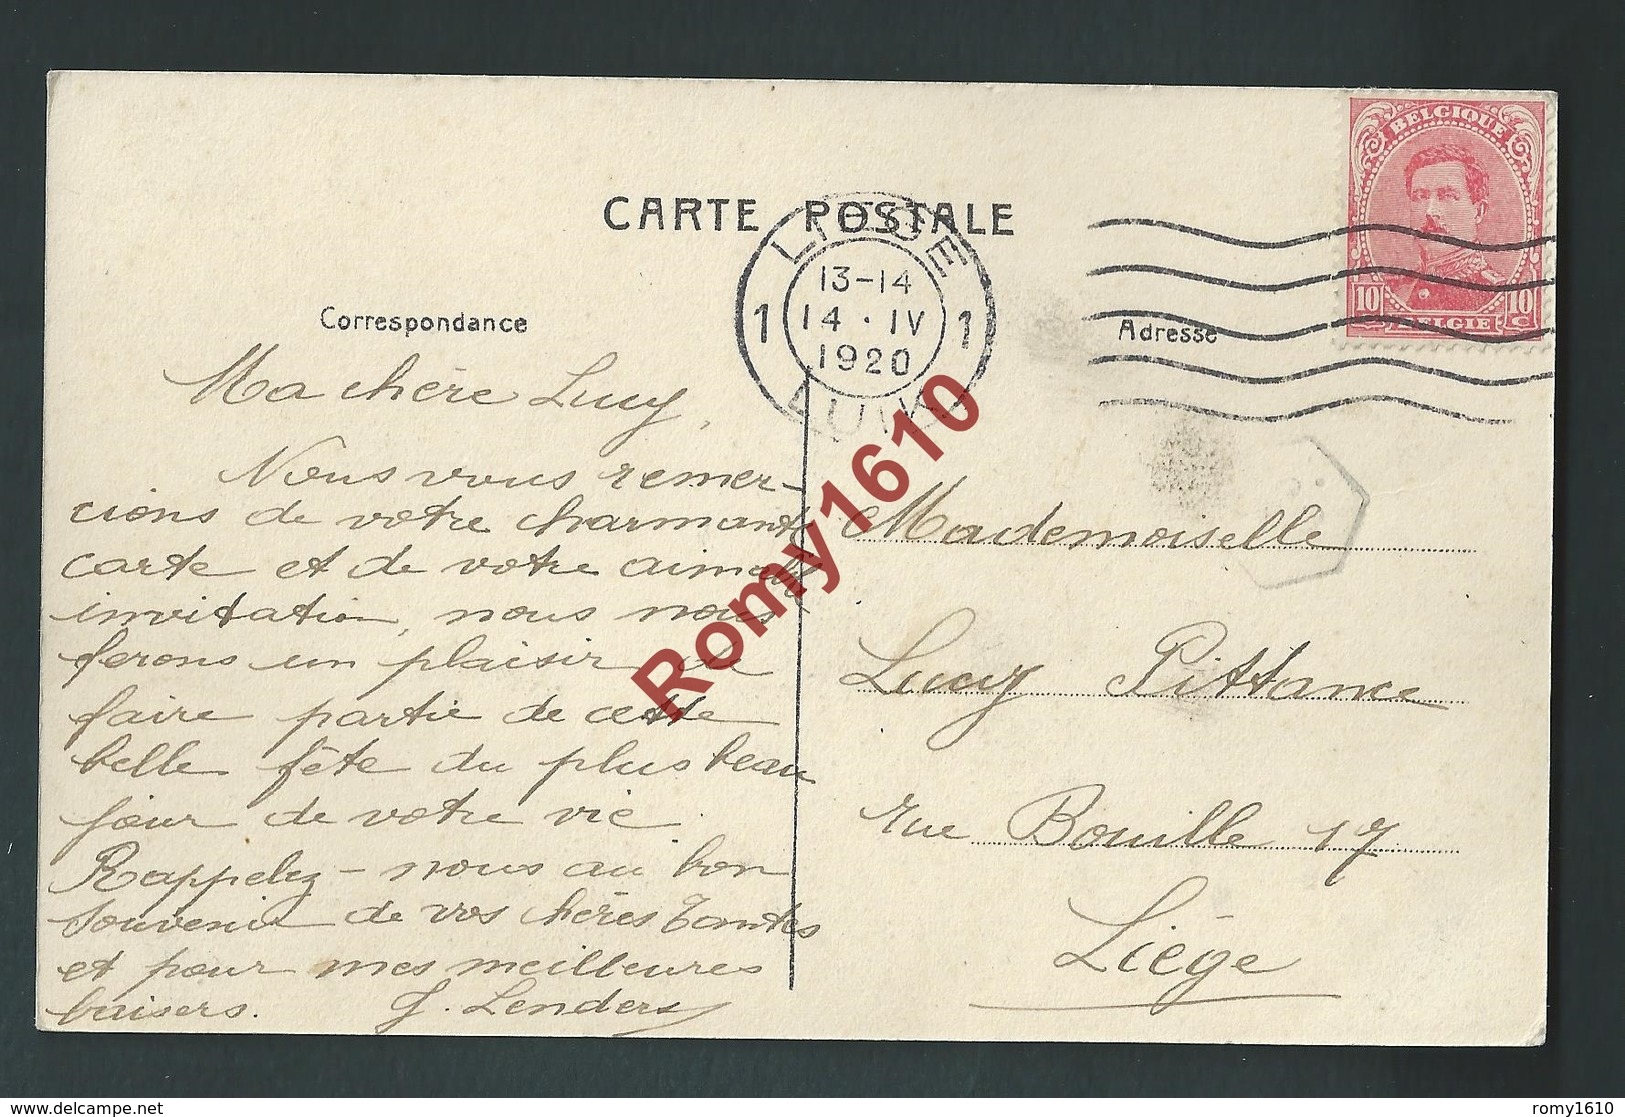 CARTE POSTALE
BELGIQUE
10 10
BELGIE C
LIEGE
13-14
1 14 · IV 1
1920
LUIK
Correspondance
Adresse
Ma chère Lucy,
Nous vous remer-
cions de votre charmante
carte et de votre aimable
invitation, nous nous
ferons un plaisir de
faire partie de cette
belle fête du plus beau
jour de votre vie.
Rappelez-nous au bon
souvenir de vos chères Tantes
et pour mes meilleures
baisers. J. Lenders
Mademoiselle
Lucy Pittance
rue Bouille 17
Liège
Romy1610
www.delcampe.net
romy1610